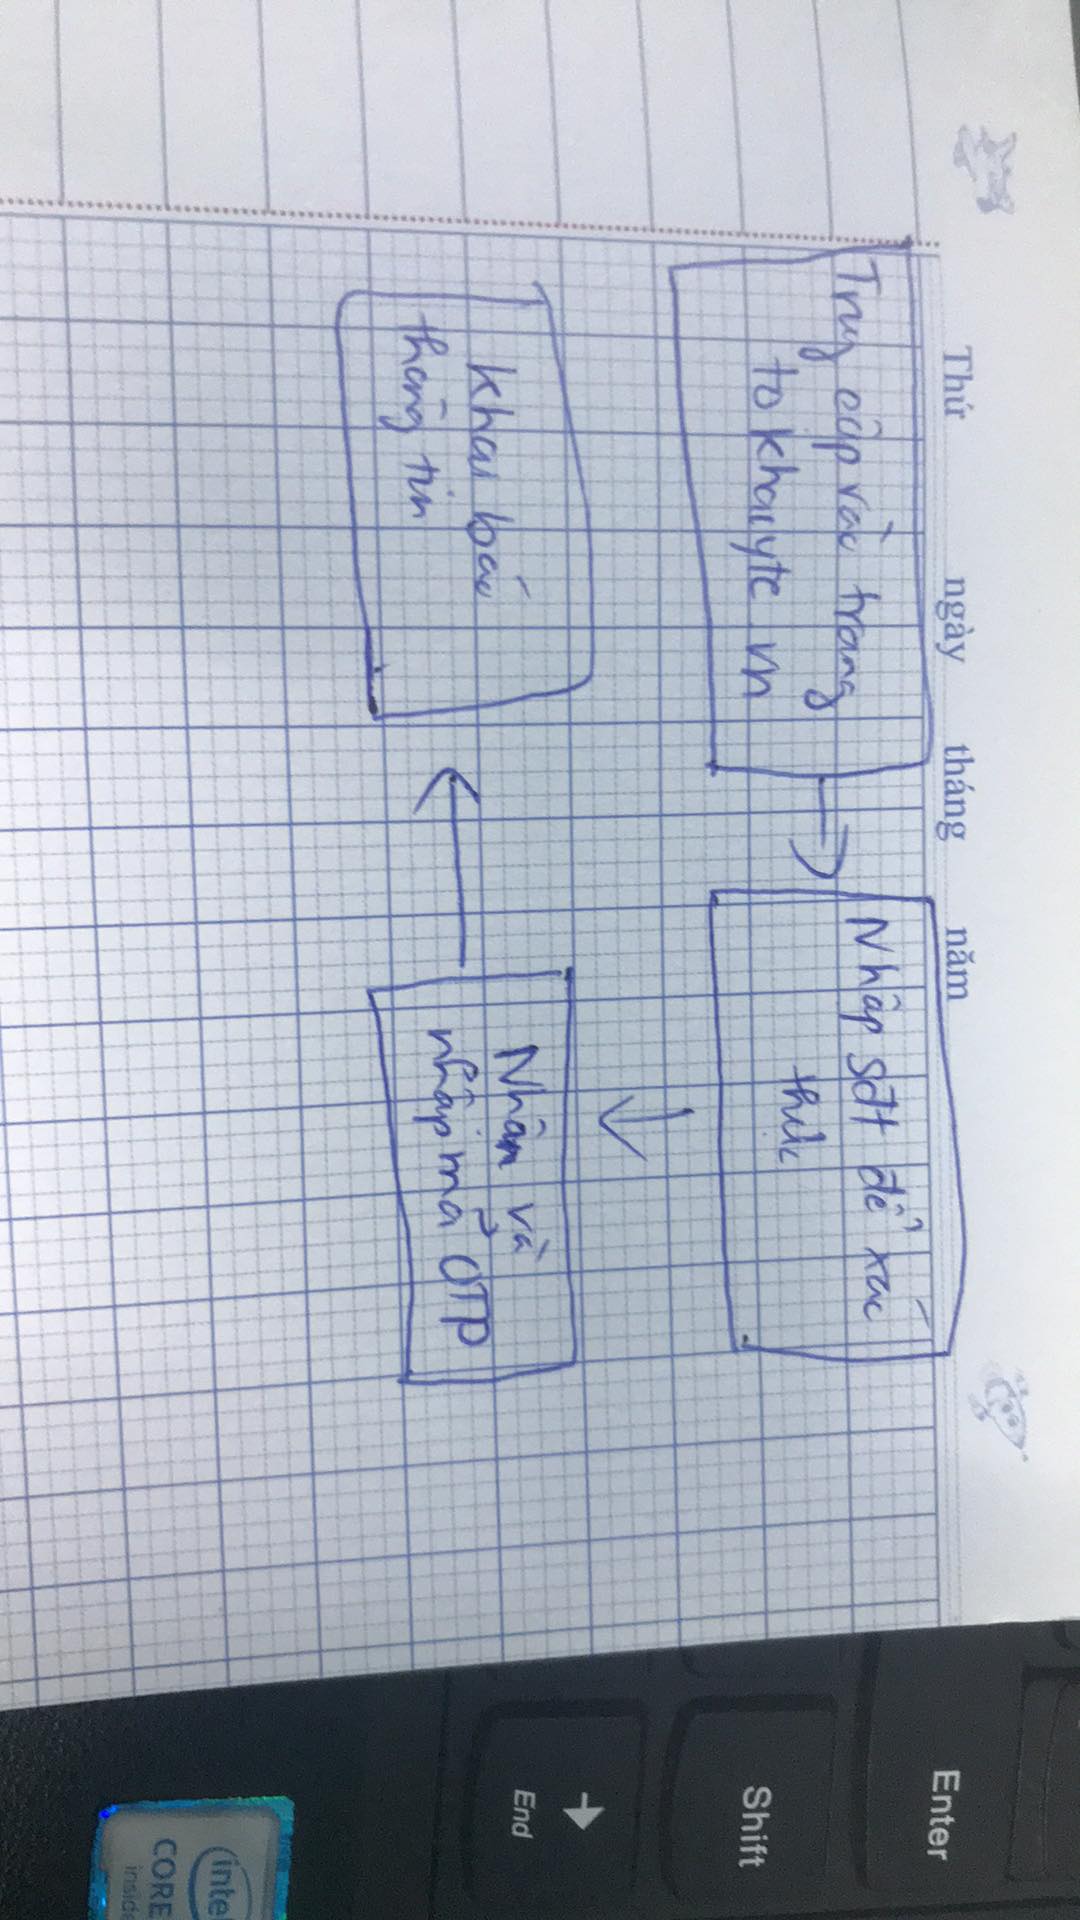 Thứ ngày tháng năm
Truy cập vào trang
tokhaiyte.vn
Nhập sđt để xác
thực
Nhận và
nhập mã OTP
Khai báo
thông tin
Enter
Shift
End
intel
CORE
inside